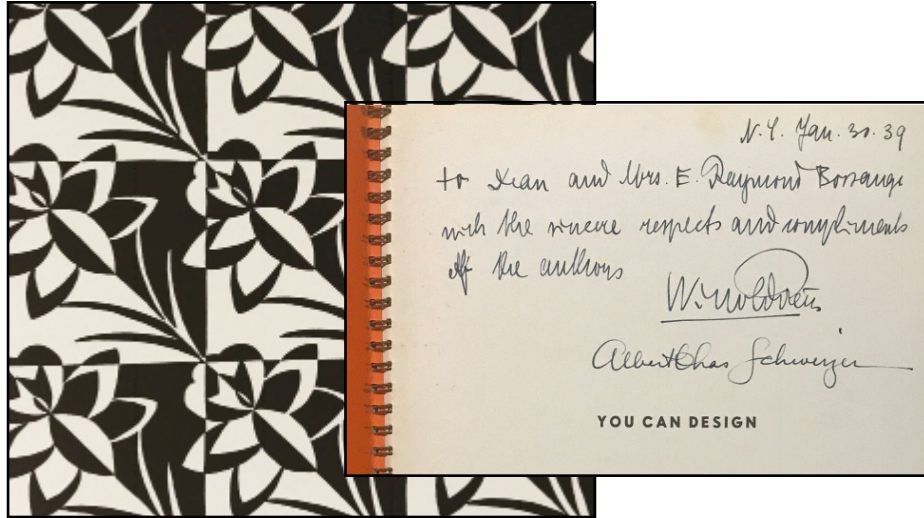 N.Y. Jan. 30. 39
to Dean and Mrs. E. Raymond Bossange
with the sincere respects and compliments
of the authors
W. Moldoveanu
Albert Chas Schweizer
YOU CAN DESIGN